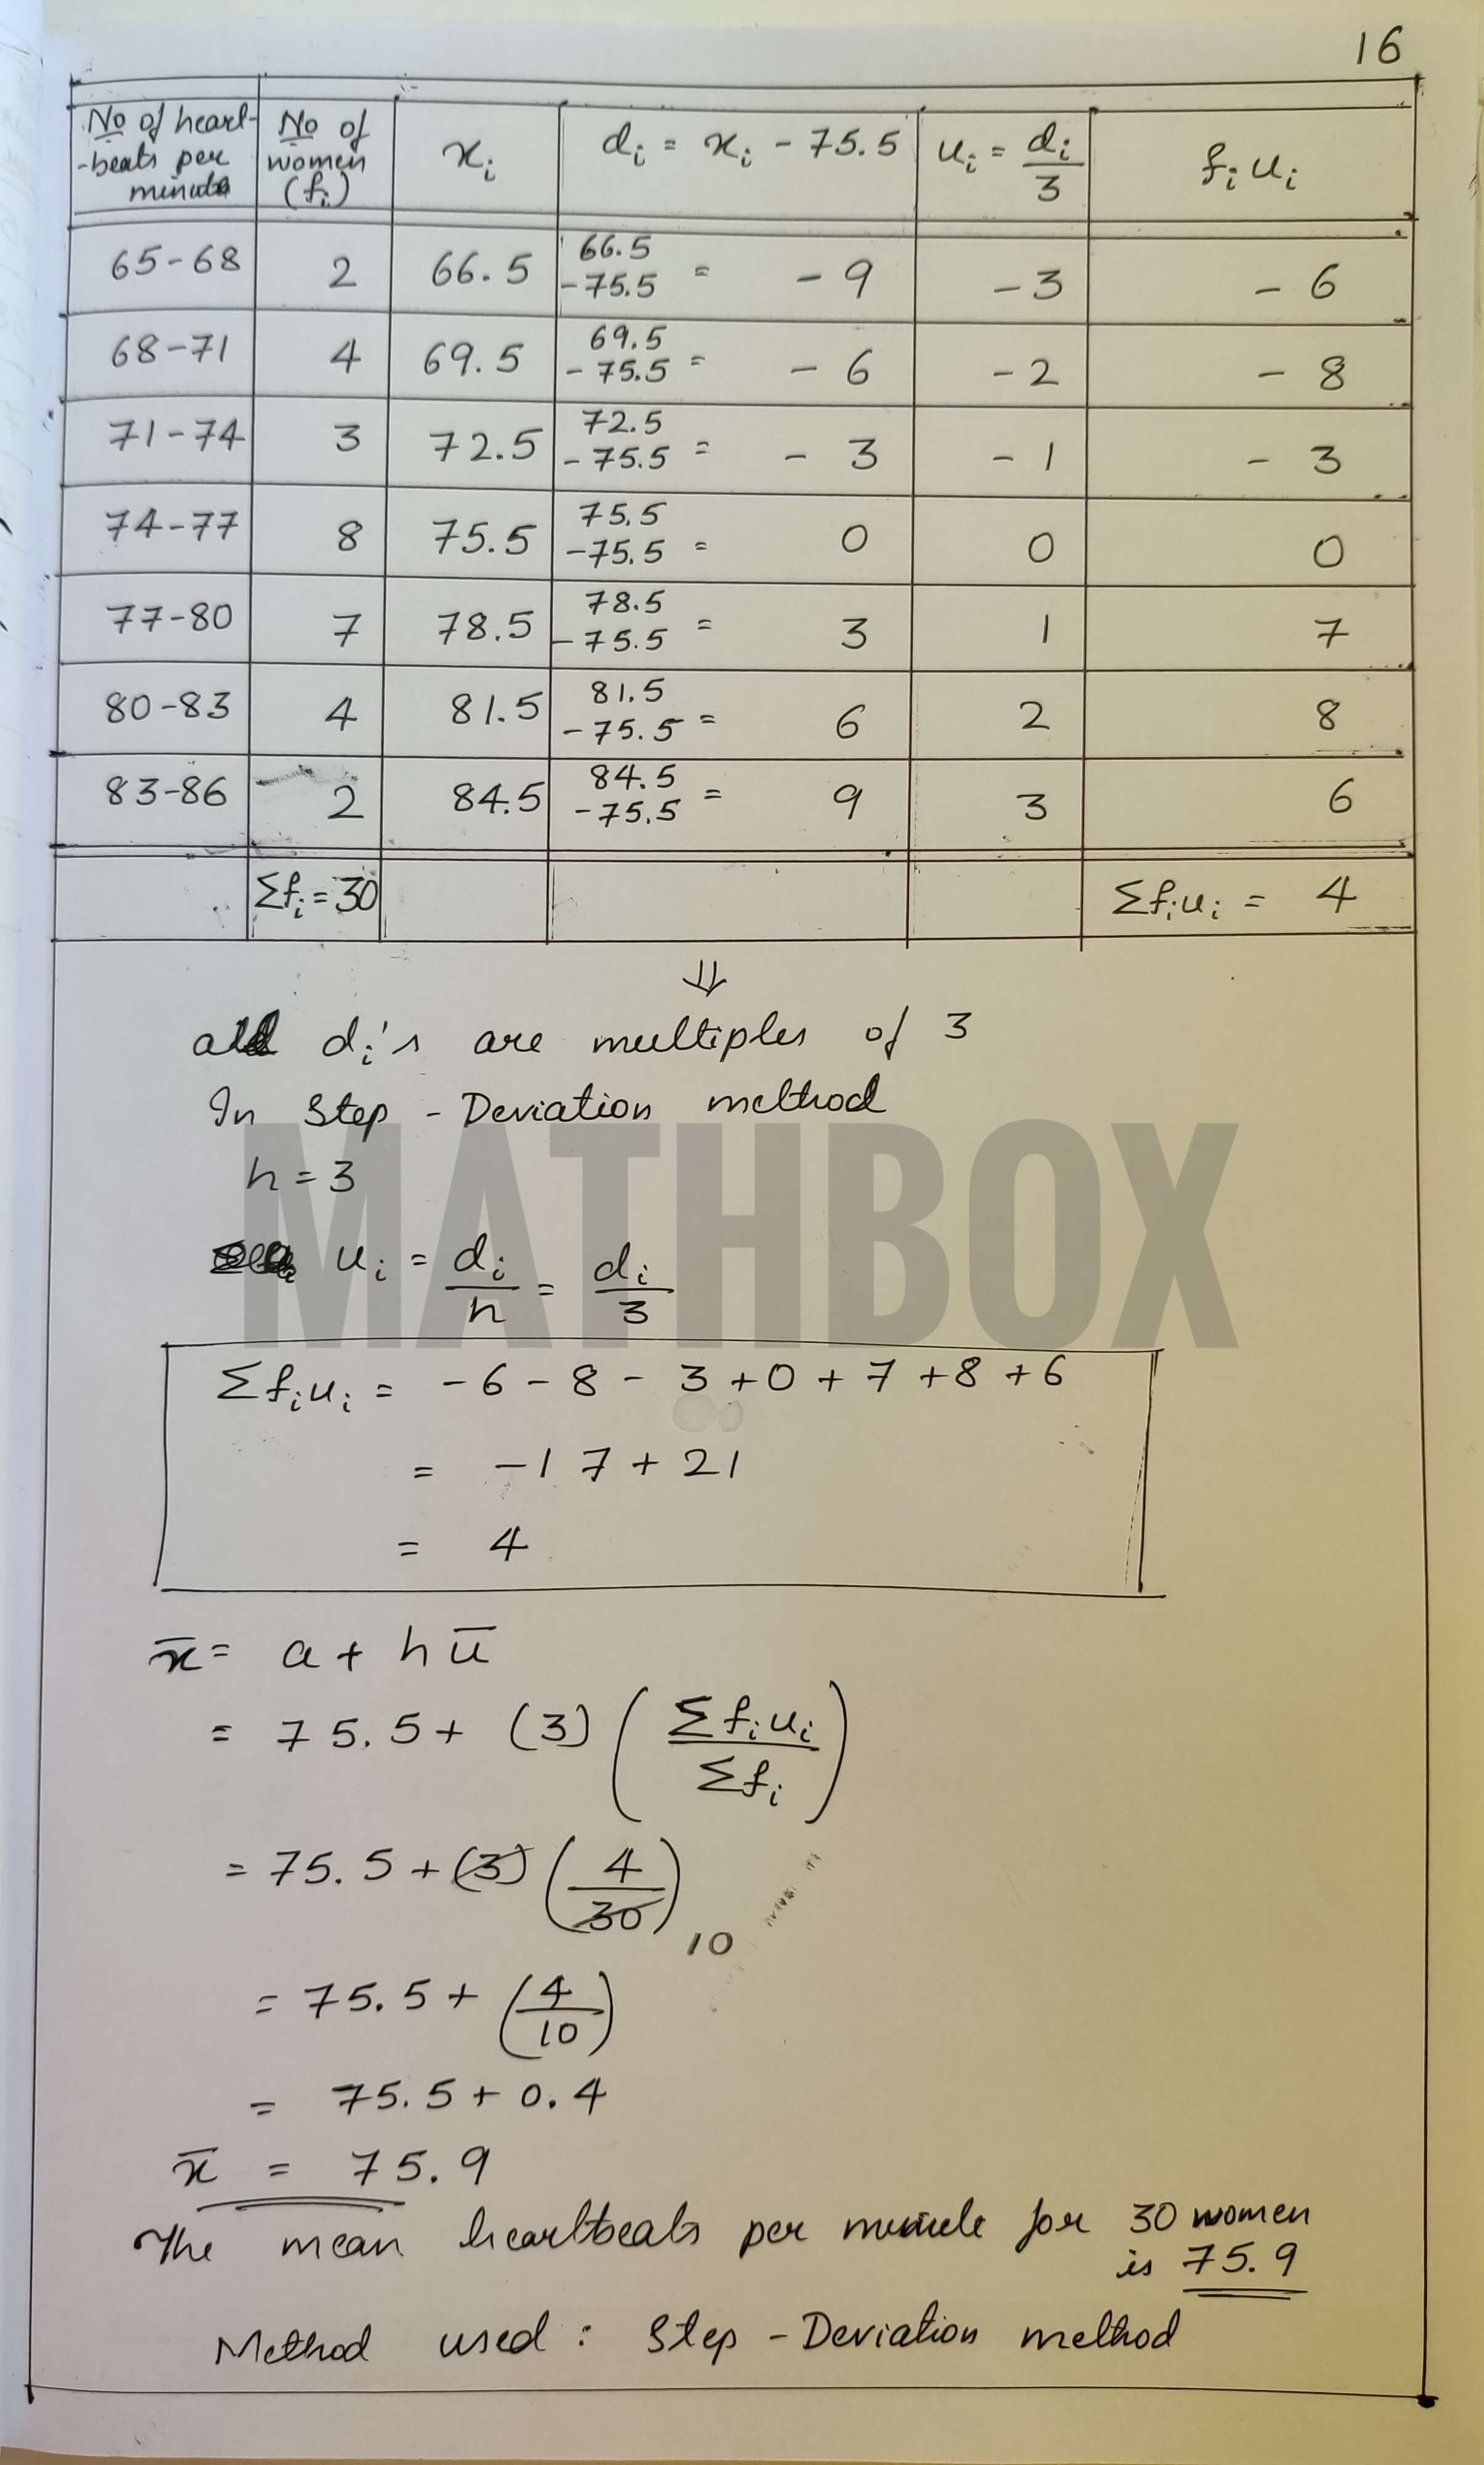 16
No of heart-
-beats per
minute
No of
women
(fi)
xi
di = xi - 75.5
ui = di/3
fiui
65-68 2 66.5 66.5 -75.5 = -9 -3 -6
68-71 4 69.5 69.5 -75.5 = -6 -2 -8
71-74 3 72.5 72.5 -75.5 = -3 -1 -3
74-77 8 75.5 75.5 -75.5 = 0 0 0
77-80 7 78.5 78.5 -75.5 = 3 1 7
80-83 4 81.5 81.5 -75.5 = 6 2 8
83-86 2 84.5 84.5 -75.5 = 9 3 6
Σfi = 30 Σfiui = 4
⇓
all di's are multiples of 3
In Step - Deviation method
MATHBOX
h = 3
ui = di/h = di/3
Σfiui = -6 -8 - 3 +0 + 7 +8 +6
= -17 + 21
= 4
x̄ = a + hū
= 75.5 + (3) (Σfiui/Σfi)
= 75.5 + (3) (4/30) 10
= 75.5 + (4/10)
= 75.5 + 0.4
x̄ = 75.9
The mean heartbeats per minute for 30 women
is 75.9
Method used : Step - Deviation method